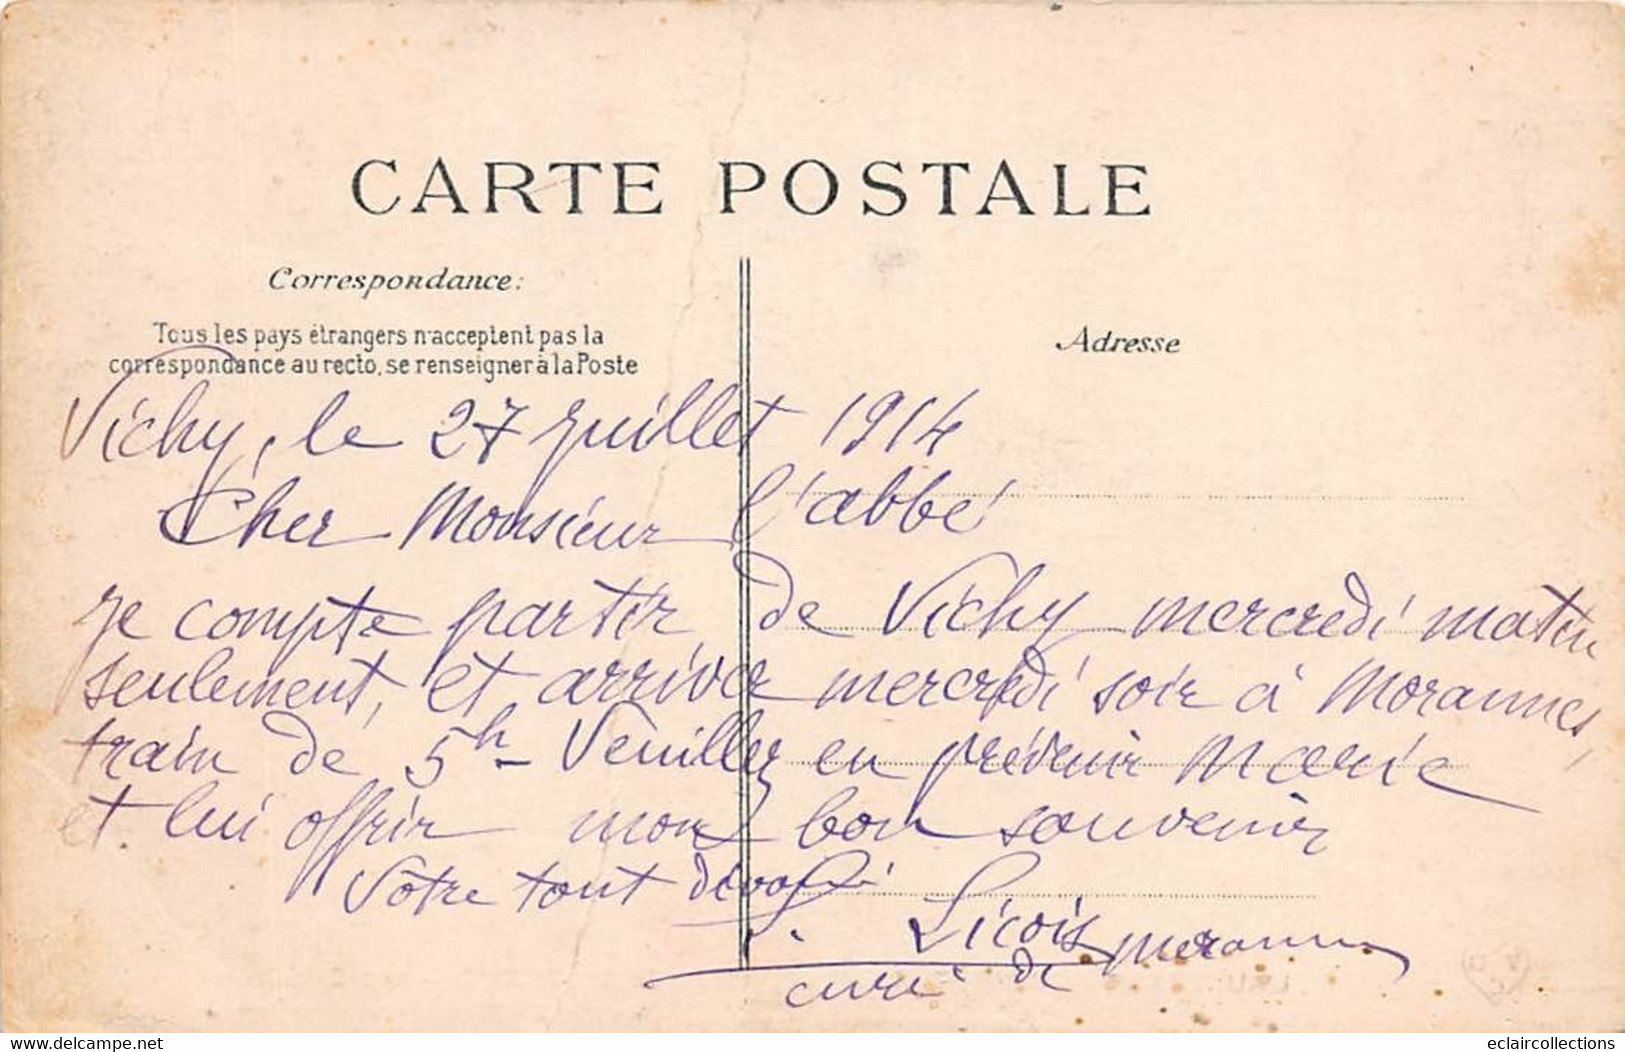 CARTE POSTALE
Correspondance:
Tous les pays étrangers n'acceptent pas la
correspondance au recto, se renseigner à la Poste
Adresse
Vichy, le 27 juillet 1914
Cher Monsieur l'abbé
je compte partir de Vichy mercredi matin
seulement, et arriver mercredi soir à Morannes,
train de 5h - Veuillez en prévenir Marie
et lui offrir mon bon souvenir
Vôtre tout dévoué
Licois
curé de Morannes
www.delcampe.net
eclaircollections